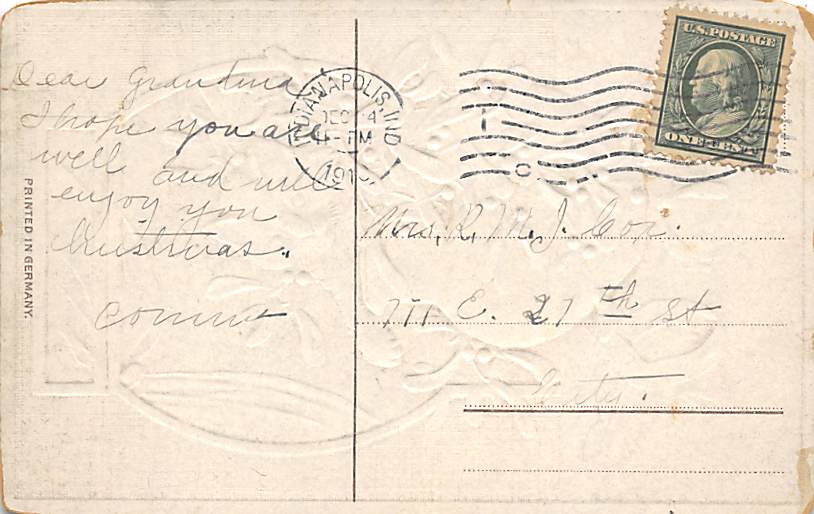 Dear Grandma
I hope you are
well and will
enjoy you
Christmas.
PRINTED IN GERMANY.
INDIANAPOLIS, IND
DEC 4
PM
191
U.S. POSTAGE
ONE CENT
Mrs. R. M. J. Cox.
711 E. 27th St
City.